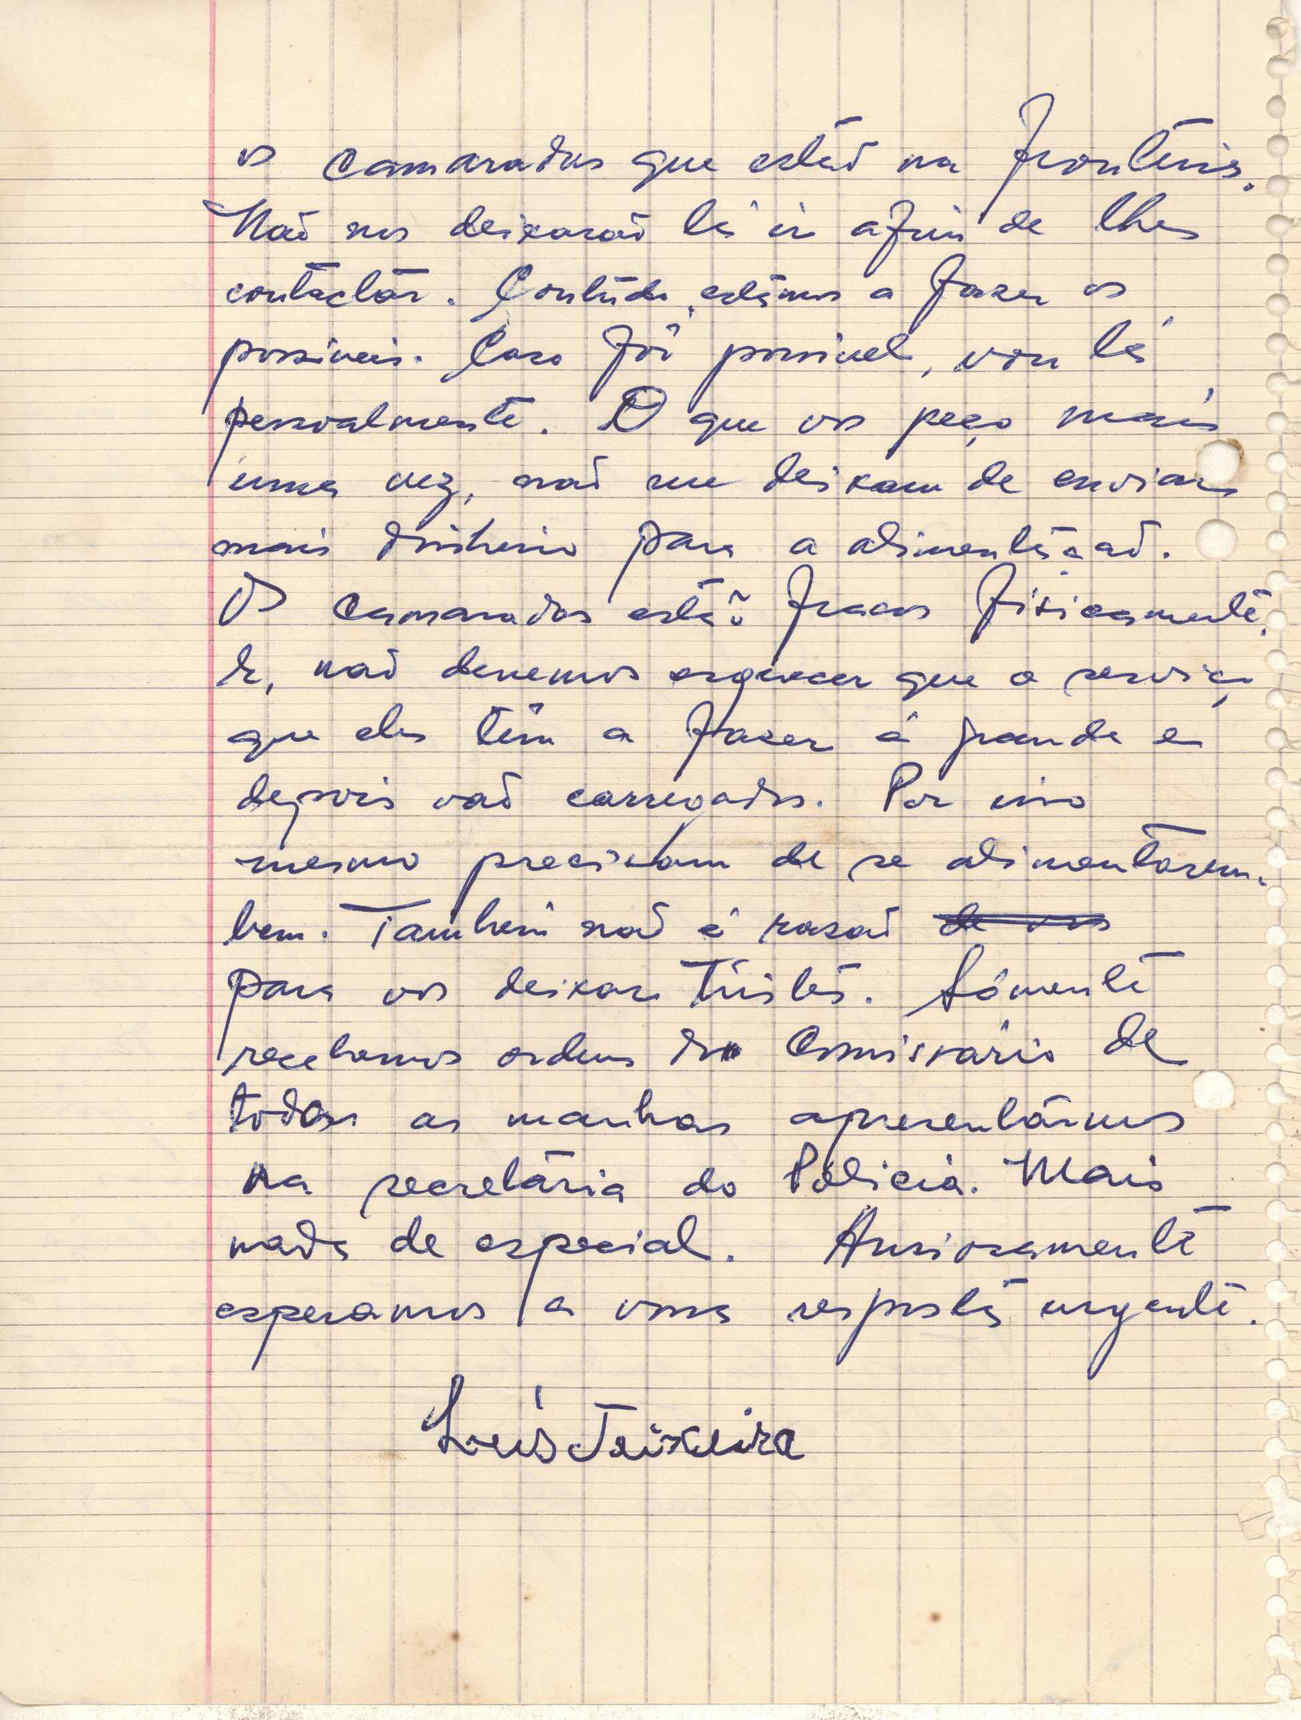 os camaradas que estão na fronteira.
Não nos deixarão lá ir afim de lhes
contactar. Contudo, estámos a fazer os
possíveis. Caso fôr possivel, vou lá
pessoalmente. O que vos peço mais
uma vez, não me deixam de enviar
mais dinheiro para a alimentação.
Os camaradas estão fracos fisicamente.
E, não devemos esquecer que o serviço
que eles têm a fazer é grande e
depois vão carregados. Por isso
mesmo precisam de se alimentarem
bem. Também não é razão de vos
para vos deixar tristes. Sómente
recebemos ordens do Comissário de
todas as manhas apresentármos
na secretária da Polícia. Mais
nada de especial. Ansiosamente
esperamos a vossa resposta urgente.
Luís Teixeira